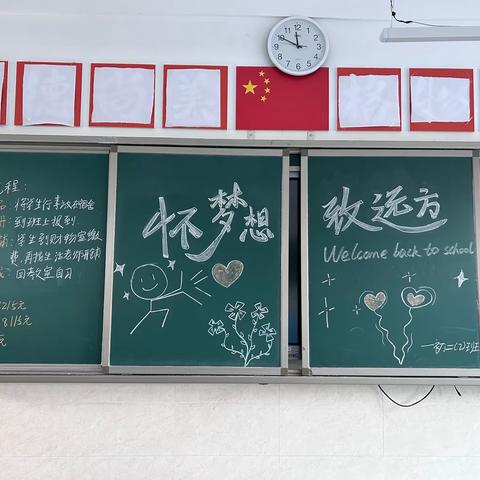 程：
将学生行李放宿舍
到班上报到
学生到财务室缴
费，再找生活老师铺
回教室自习
215元
8115元
元
怀梦想
致远方
Welcome back to school
一初二(2)班